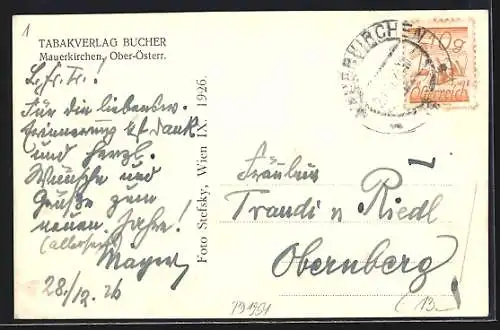 1
TABAKVERLAG BUCHER
Mauerkirchen, Ober-Österr.
L. Fr. Tr.!
Für die liebensw.
Erinnerung bst. Dank
und herzl.
Wünsche und
Grüße zum
neuen Jahre!
Mayer
28./12. 26
Foto Stefsky, Wien IX. 1926.
MAUERKIRCHEN
10g
Österreich
Fräulein
Traudi v Riedl
Obernberg